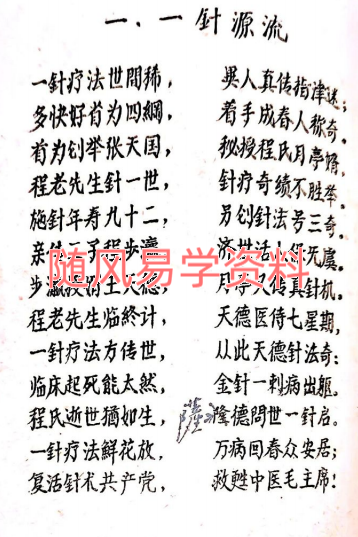 一、一針源流
一針疗法世間稀，　異人真传指津迷；
多快好省为四綱，　着手成春人称奇。
首为创举张天国，　秘授程氏月亭婿，
程老先生針一世，　针疗奇绩不胜举。
施針年寿九十二，　另创針法号三奇。
亲 子程步瀛　济世活 无虞。
随风易学资料
步瀛授 天德，　月亭又传真針机。
程老先生临終计，　天德医侍七星期，
一針疗法方传世，　从此天德針法奇；
临床起死能太然，　金針一刺病出躯。
程氏逝世猶如生，　隆德問世一針启。
一針疗法鮮花放，　万病回春众安居；
复活针术共产党，　救甦中医毛主席！